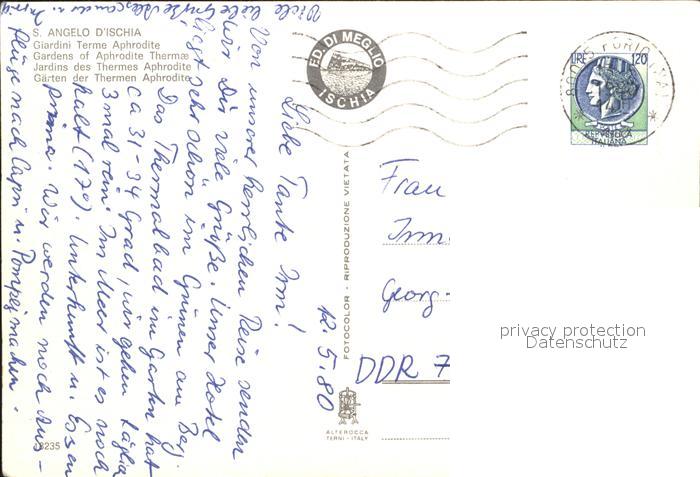 S. ANGELO D'ISCHIA
Giardini Terme Aphrodite
Gardens of Aphrodite Thermæ
Jardins des Thermes Aphrodite
Gärten der Thermen Aphrodite
FD. DI MEGLIO
ISCHIA
LIRE 120
REPVBBLICA
ITALIANA
FORIO
12.5.80
Liebe Tante Irm!
Von unserer herrlichen Reise senden
wir Dir viele Grüße. Unser Hotel
liegt sehr schön im Grünen am Berg.
Das Thermalbad im Garten hat
ca 31-34 Grad, wir gehen täglich
3 mal rein. Im Meer ist es noch
kalt (17°). Unterkunft u. Essen
prima. Wir werden noch Aus-
flüge nach Capri u. Pompej machen.
Viele liebe Grüße
Frau
Irm.
Georg-
DDR 7
FOTOCOLOR - RIPRODUZIONE VIETATA
ALTEROCCA
TERNI - ITALY
privacy protection
Datenschutz